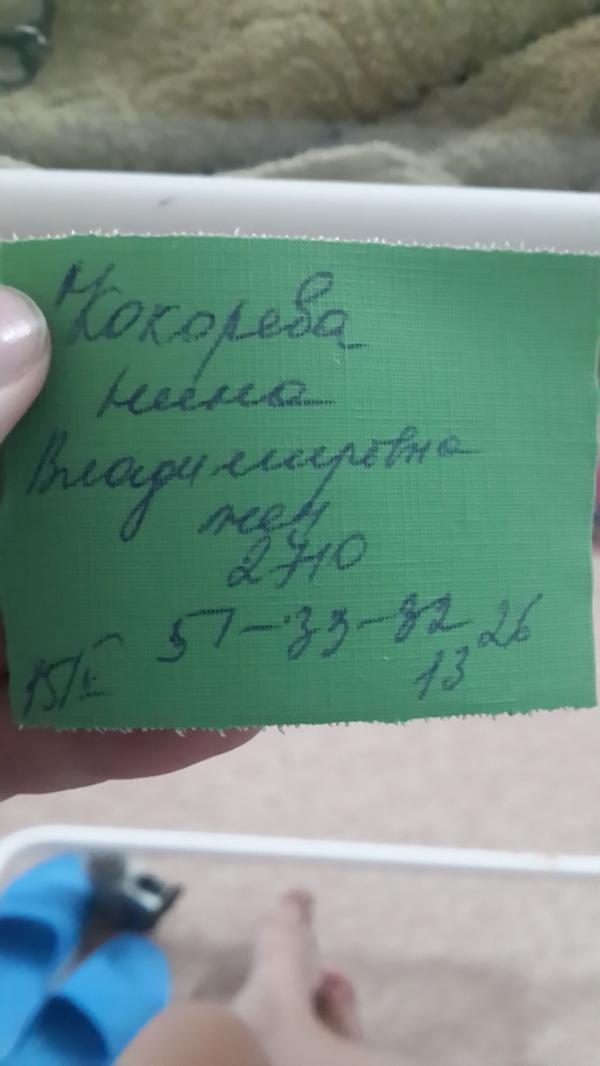 Кокорева
Нина
Владимировна
жен
2710
51-33-82 26
15/V 13